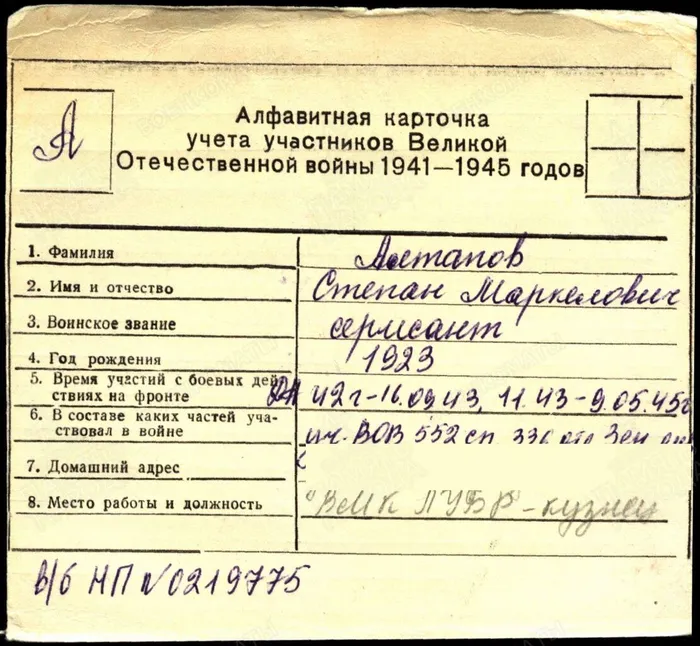 А
Алфавитная карточка
учета участников Великой
Отечественной войны 1941—1945 годов
1. Фамилия
Алтапов
2. Имя и отчество
Степан Маркелович
3. Воинское звание
сержант
4. Год рождения
1923
5. Время участий с боевых дей-
ствиях на фронте
42 г - 16.09.43, 11.43 - 9.05.45г
6. В составе каких частей уча-
ствовал в войне
уч. ВОВ 552 сп 330
7. Домашний адрес
8. Место работы и должность
"ВМК ЛУБР" - кузнец
В/б НП №0219775